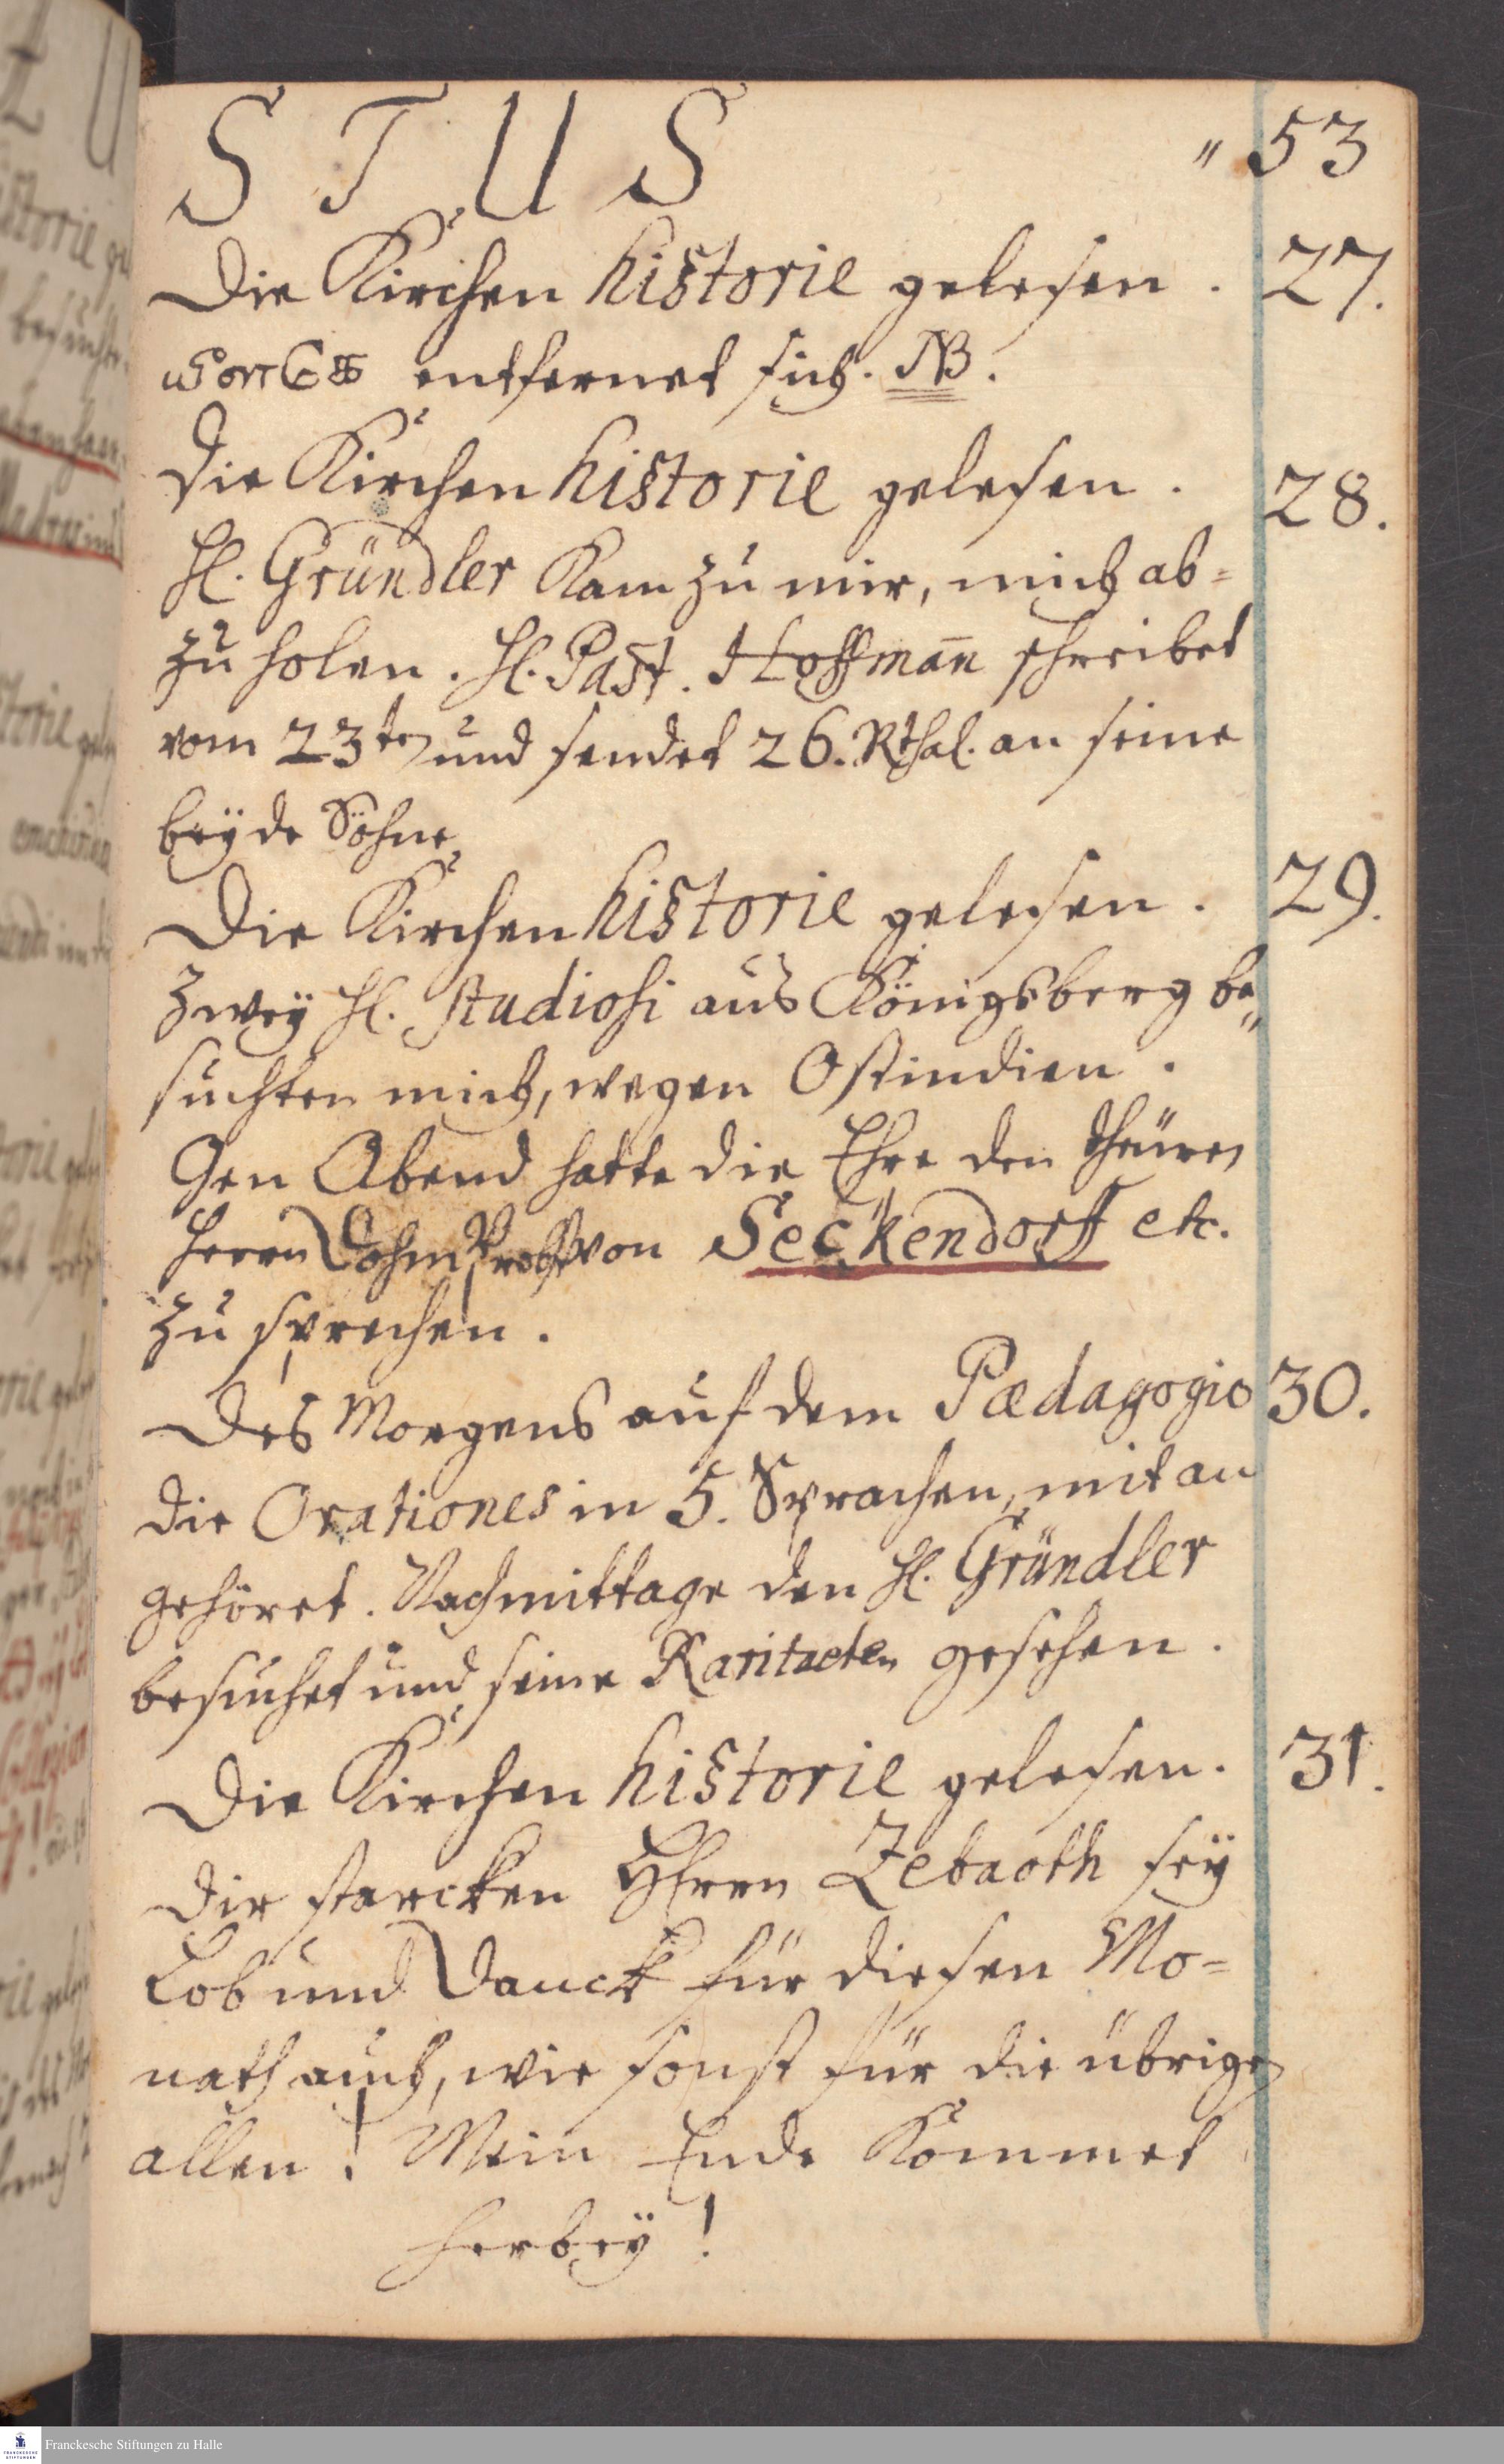 STUS " 53
Die Kirchen historie gelesen. 27.
entfernet sich. NB.
Die Kirchen historie gelesen. 28.
H. Gründler kam zu mir, mich ab=
zu holen. H. Past. Hoffmañ schreibet
vom 23ten und sendet 26. Rthal. an seine
beÿde Söhne
Die Kirchen historie gelesen. 29.
Zweÿ H. Studiosi aus Königsberg be„
suchten mich, wegen Ostindien.
Gen Abend hatte die Ehre den theuren
Herrn Dohm Probst von Seckendorff etc.
zu sprechen.
Des Morgens auf dem Pædagogio 30.
die Orationes in 5. Sprachen, mit an
gehöret. Nachmittage den H. Gründler
besuchet und seine Raritaeten gesehen.
Die Kirchen historie gelesen. 31.
Dir starcken HErrn Zebaoth seÿ
Lob und Danck für diesen Mo=
nath auch, wie sonst für die übrigen
allen! Mein Ende kommet
herbeÿ!
Franckesche Stiftungen zu Halle